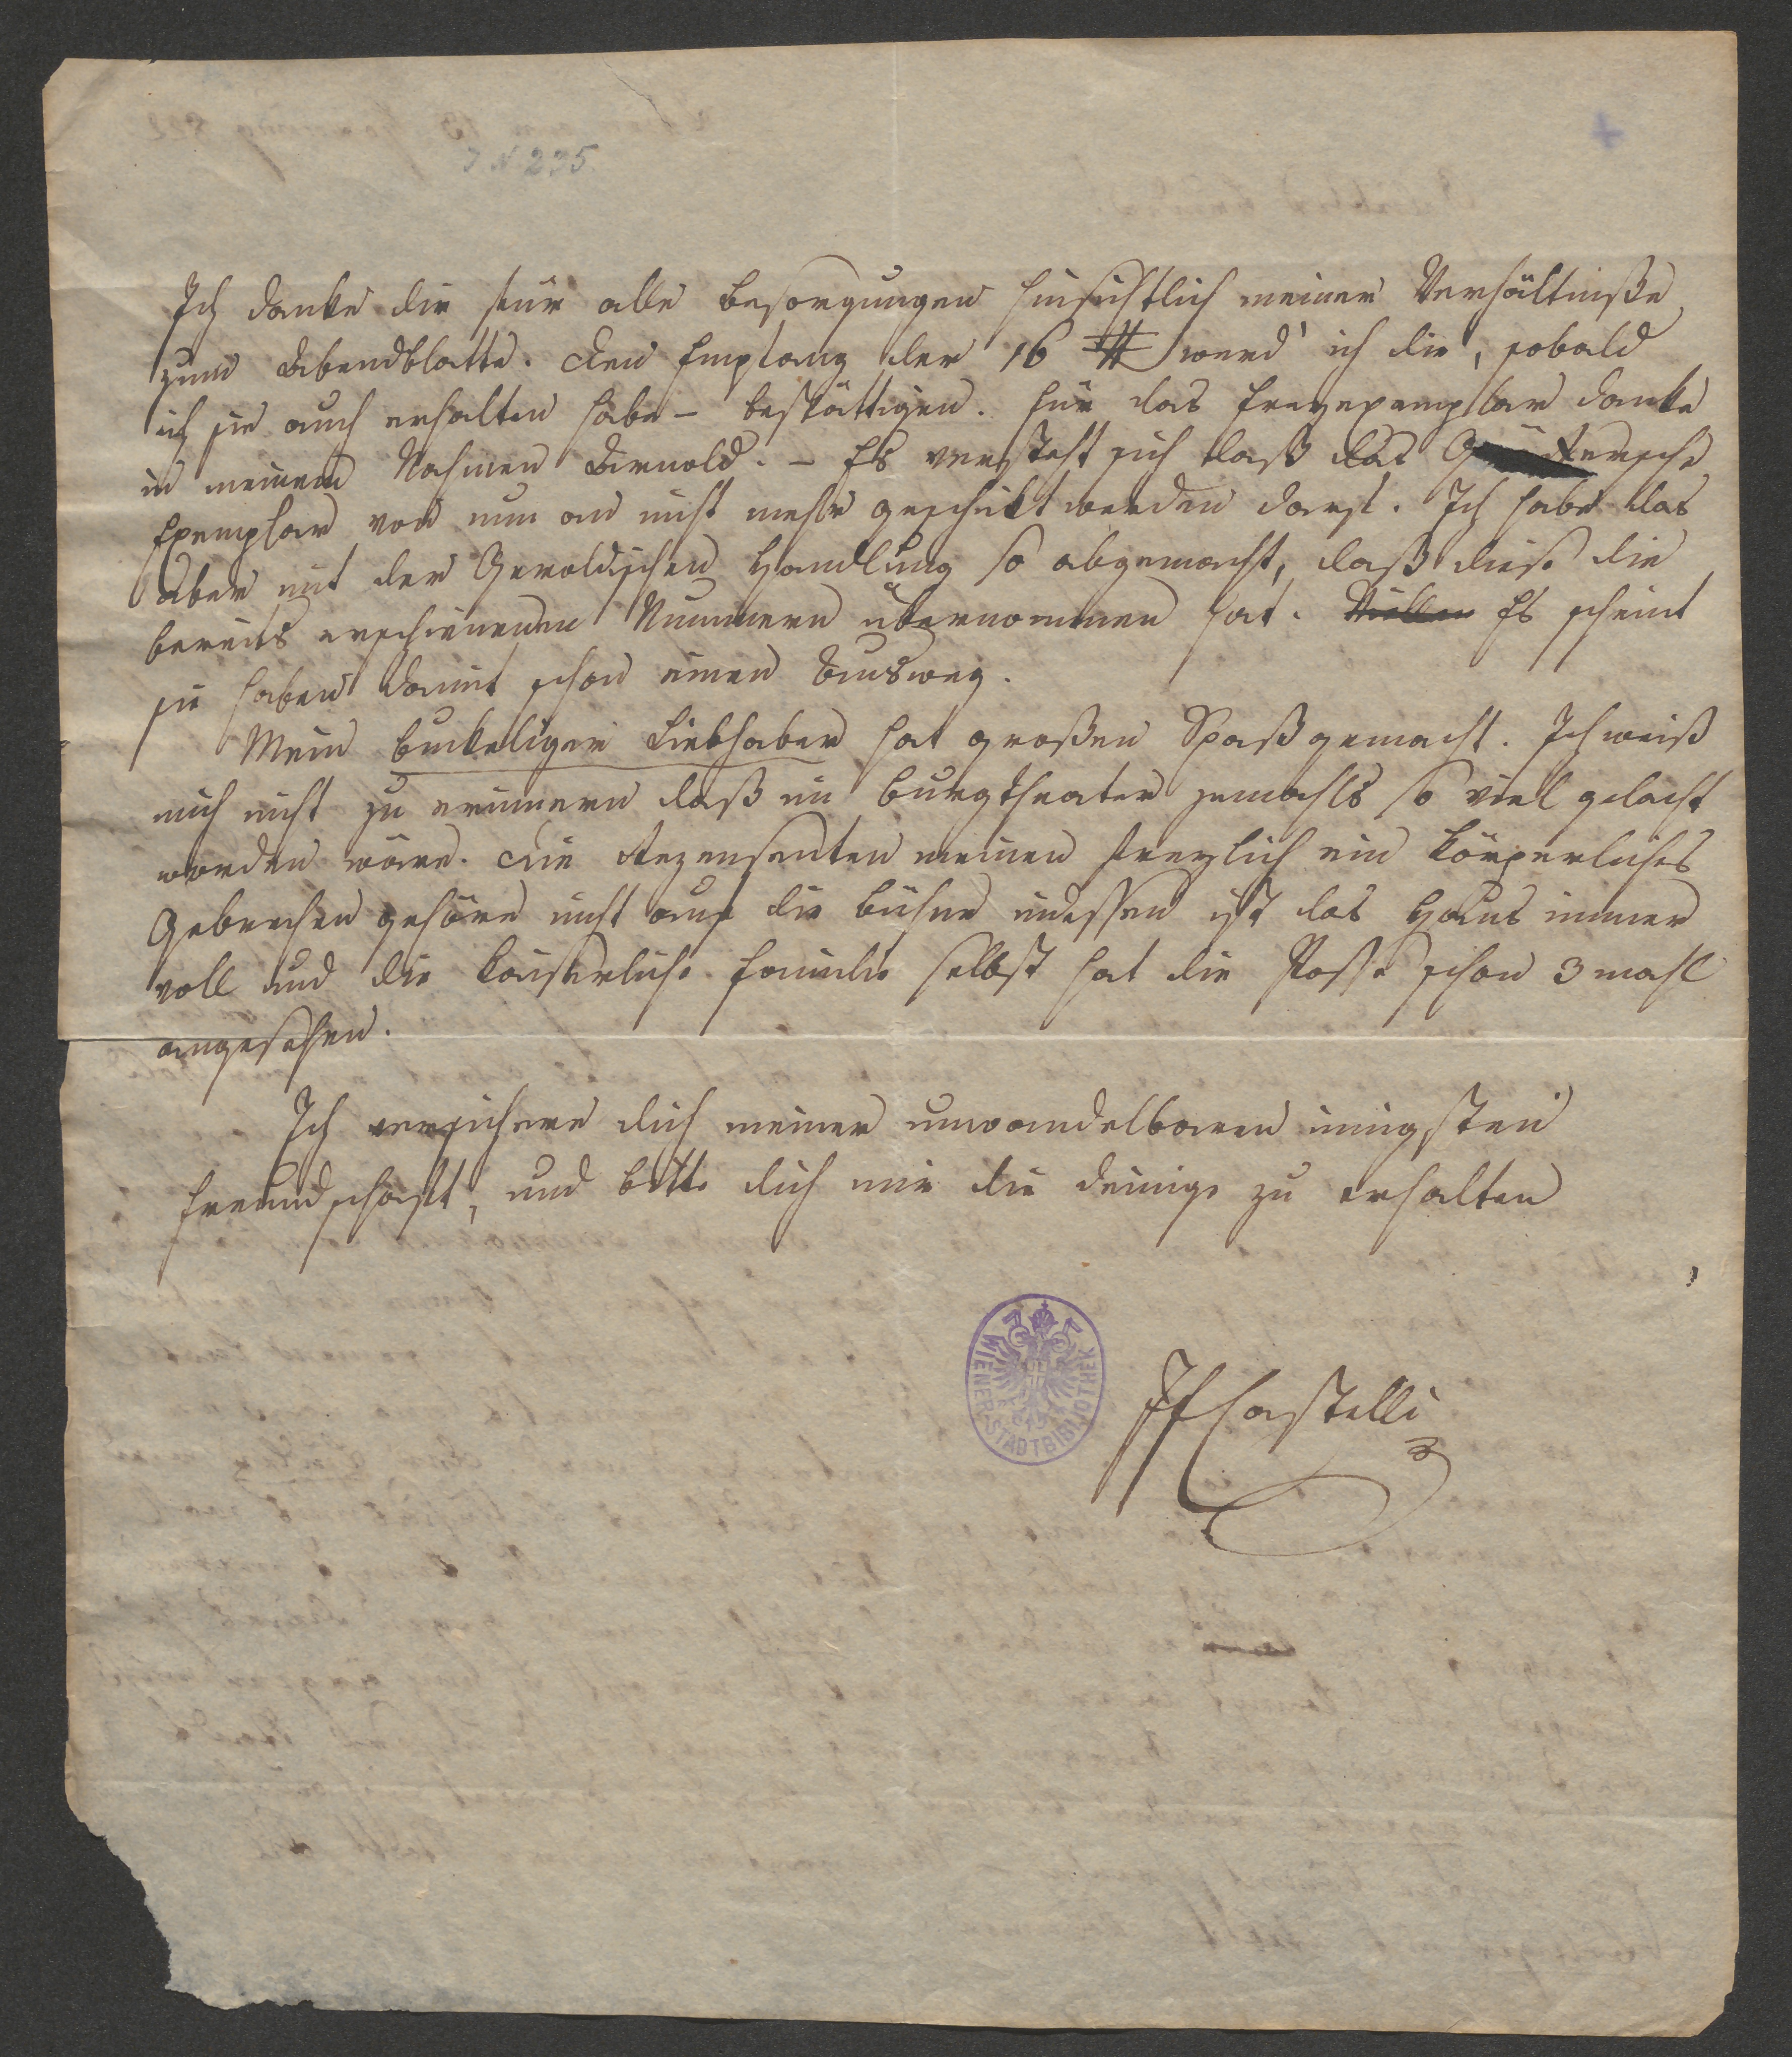 J N 235.
Ich danke dir für alle Besorgungen hinsichtlich meiner Verhältniße
zum Abendblatte. Den Empfang der 16 # werd' ich dir, sobald
ich sie auch erhalten habe – bestättigen. Für das Freyexemplar danke
in meinem Nahmen Arnold. – Es versteht sich daß das
Exemplar von nun an nicht mehr geschickt werden darf. Ich habe das
aber mit der Geroldischen Handlung so abgemacht, daß diese die
bereits erschienenen Nummern übernommen hat. Es scheint
sie haben damit schon einen Ausweg.
Mein buckeliger Liebhaber hat großen Spaß gemacht. Ich weiß
mich nicht zu erinnern daß im Burgtheater jemahls so viel gelacht
worden wäre. Die Rezensenten meinen freylich ein körperliches
Gebrechen gehöre nicht auf die Bühne indessen ist das Haus immer
voll und die kaiserliche Familie selbst hat die Posse schon 3 mahl
angesehen.
Ich versichere dich meiner unwandelbaren innigsten
Freundschaft, und bitte dich mir die deinige zu erhalten
WIENER STADTBIBLIOTHEK
JFCastelli